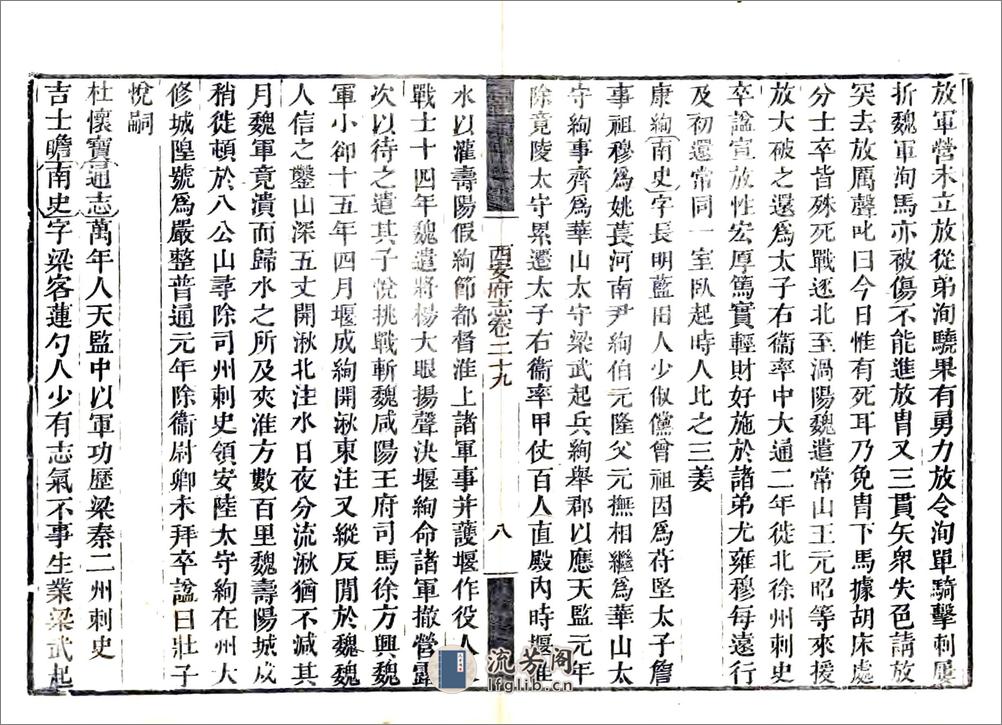 放軍營未立放從弟洵驍果有勇力放令洵單騎擊刺屢
折魏軍洵馬亦被傷不能進放冑又三貫矢衆失色請放
突去放厲聲叱曰今日惟有死耳乃免冑下馬據胡床處
分士卒皆殊死戰逐北至渦陽魏遣常山王元昭等來援
放大破之還爲太子右衞率中大通二年徙北徐州刺史
卒諡宣放性宏厚篤實輕財好施於諸弟尤雍穆每遠行
及初還常同一室臥起時人比之三姜
康絢南史字長明藍田人少俶儻曾祖因爲苻堅太子詹
事祖穆爲姚萇河南尹絢伯元隆父元撫相繼爲華山太
守絢事齊爲華山太守梁武起兵絢舉郡以應天監元年
除竟陵太守累遷太子右衞率甲仗百人直殿內時堰淮
西安府志卷二十九
八
水以灌壽陽假絢節都督淮上諸軍事并護堰作役人
戰士十四年魏遣將楊大眼揚聲決堰絢命諸軍撤營露
次以待之遣其子悅挑戰斬魏咸陽王府司馬徐方興魏
軍小卻十五年四月堰成絢開湫東注又縱反閒於魏魏
人信之鑿山深五丈開湫北注水日夜分流湫猶不減其
月魏軍竟潰而歸水之所及夾淮方數百里魏壽陽城戍
稍徙頓於八公山尋除司州刺史領安陸太守絢在州大
修城隍號爲嚴整普通元年除衞尉卿未拜卒諡曰壯子
悅嗣
杜懷寶通志萬年人天監中以軍功歷梁秦二州刺史
吉士瞻南史字梁客蓮勺人少有志氣不事生業梁武起
流芳閣
lfglib.cn